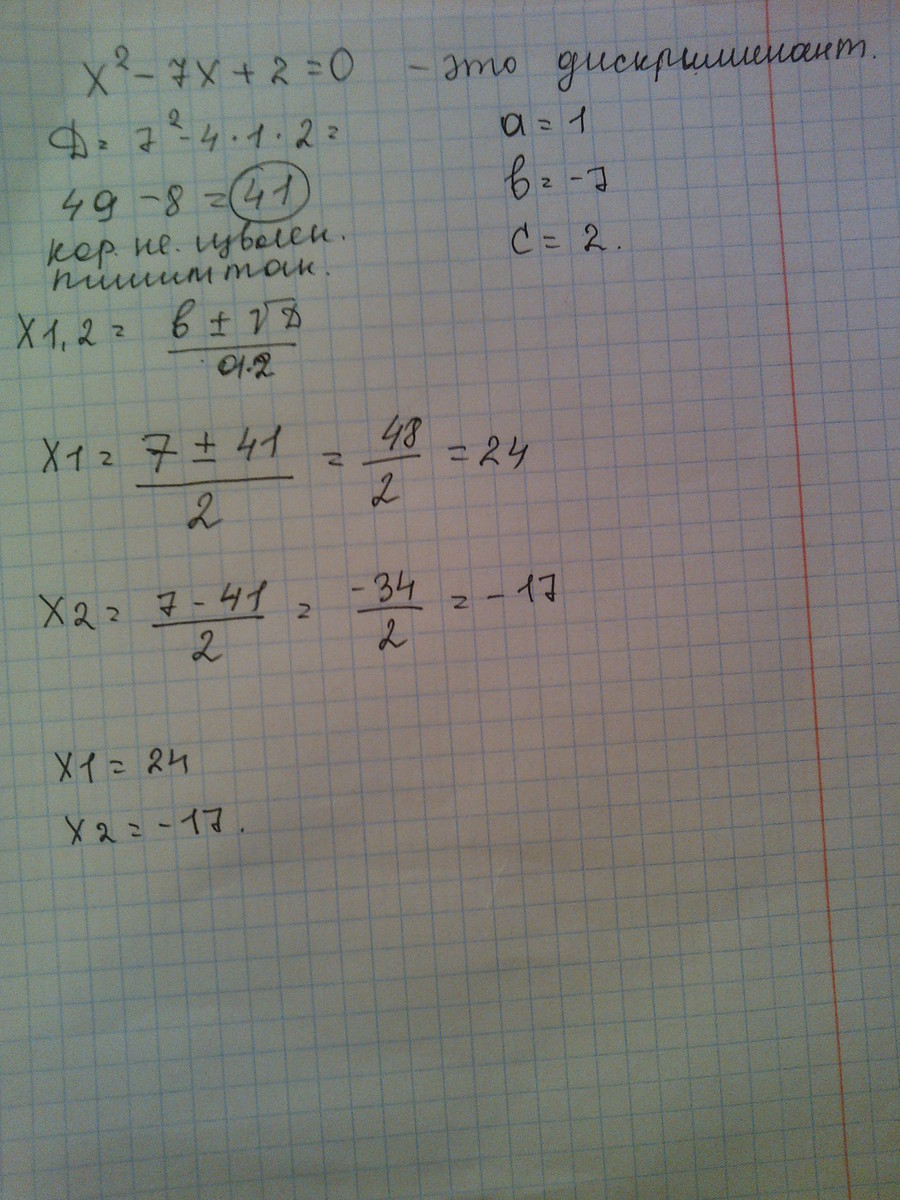 x² - 7x + 2 = 0 - это дискриминант.
D = 7² - 4·1·2 =
a = 1
49 - 8 = 41
b = -7
кор. не. извлек.
c = 2.
пишим так.
x1,2 = b ± √D / a·2
x1 = 7 ± 41 / 2 = 48 / 2 = 24
x2 = 7 - 41 / 2 = -34 / 2 = -17
x1 = 24
x2 = -17.